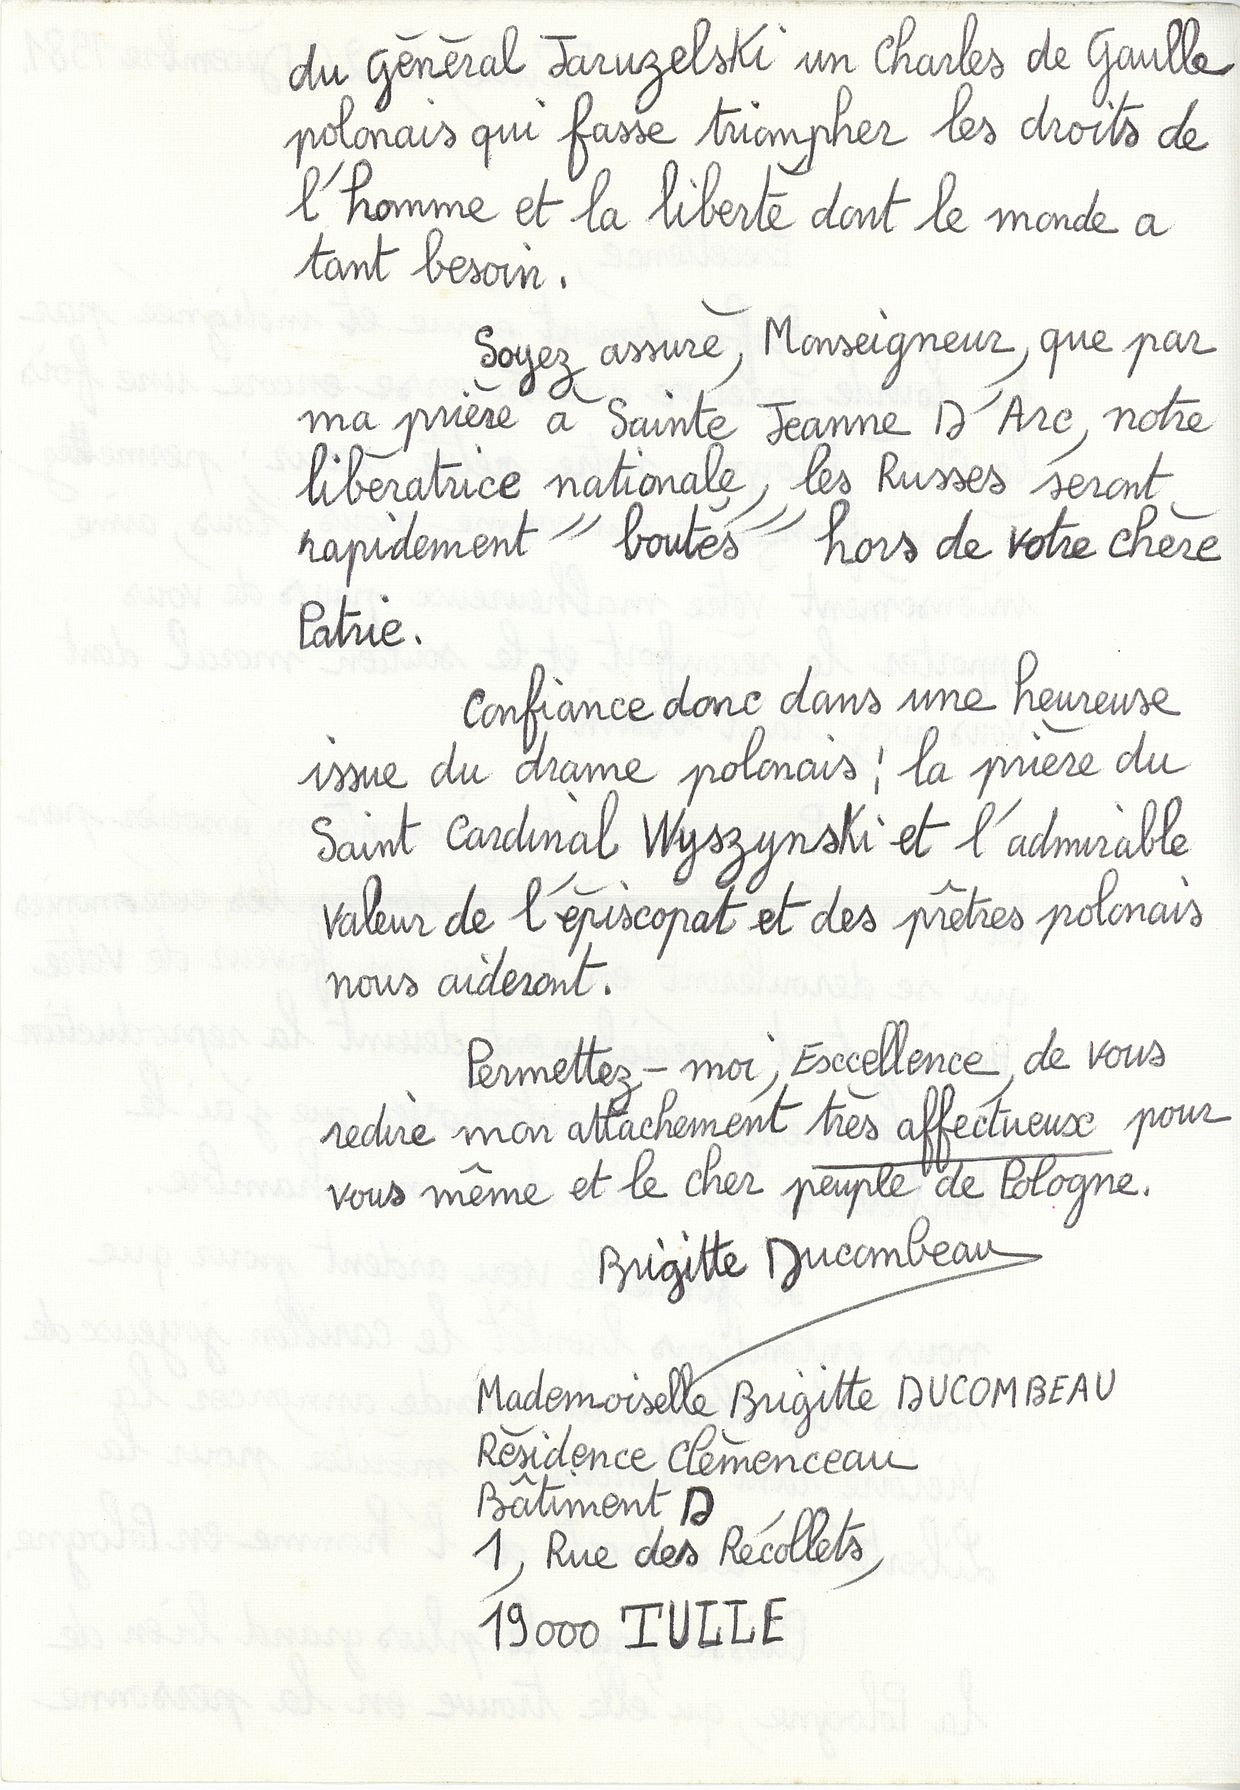 du Général Jaruzelski un Charles de Gaulle
polonais qui fasse triompher les droits de
l'homme et la liberté dont le monde a
tant besoin.
Soyez assuré, Monseigneur, que par
ma prière à Sainte Jeanne D'Arc, notre
libératrice nationale, les Russes seront
rapidement "boutés" hors de votre chère
Patrie.
Confiance donc dans une heureuse
issue du drame polonais ; la prière du
Saint Cardinal Wyszynski et l'admirable
valeur de l'épiscopat et des prêtres polonais
nous aideront.
Permettez-moi, Excellence, de vous
redire mon attachement très affectueux pour
vous même et le cher peuple de Pologne.
Brigitte Ducombeau
Mademoiselle Brigitte DUCOMBEAU
Résidence Clémenceau
Bâtiment D
1, Rue des Récollets,
19000 TULLE